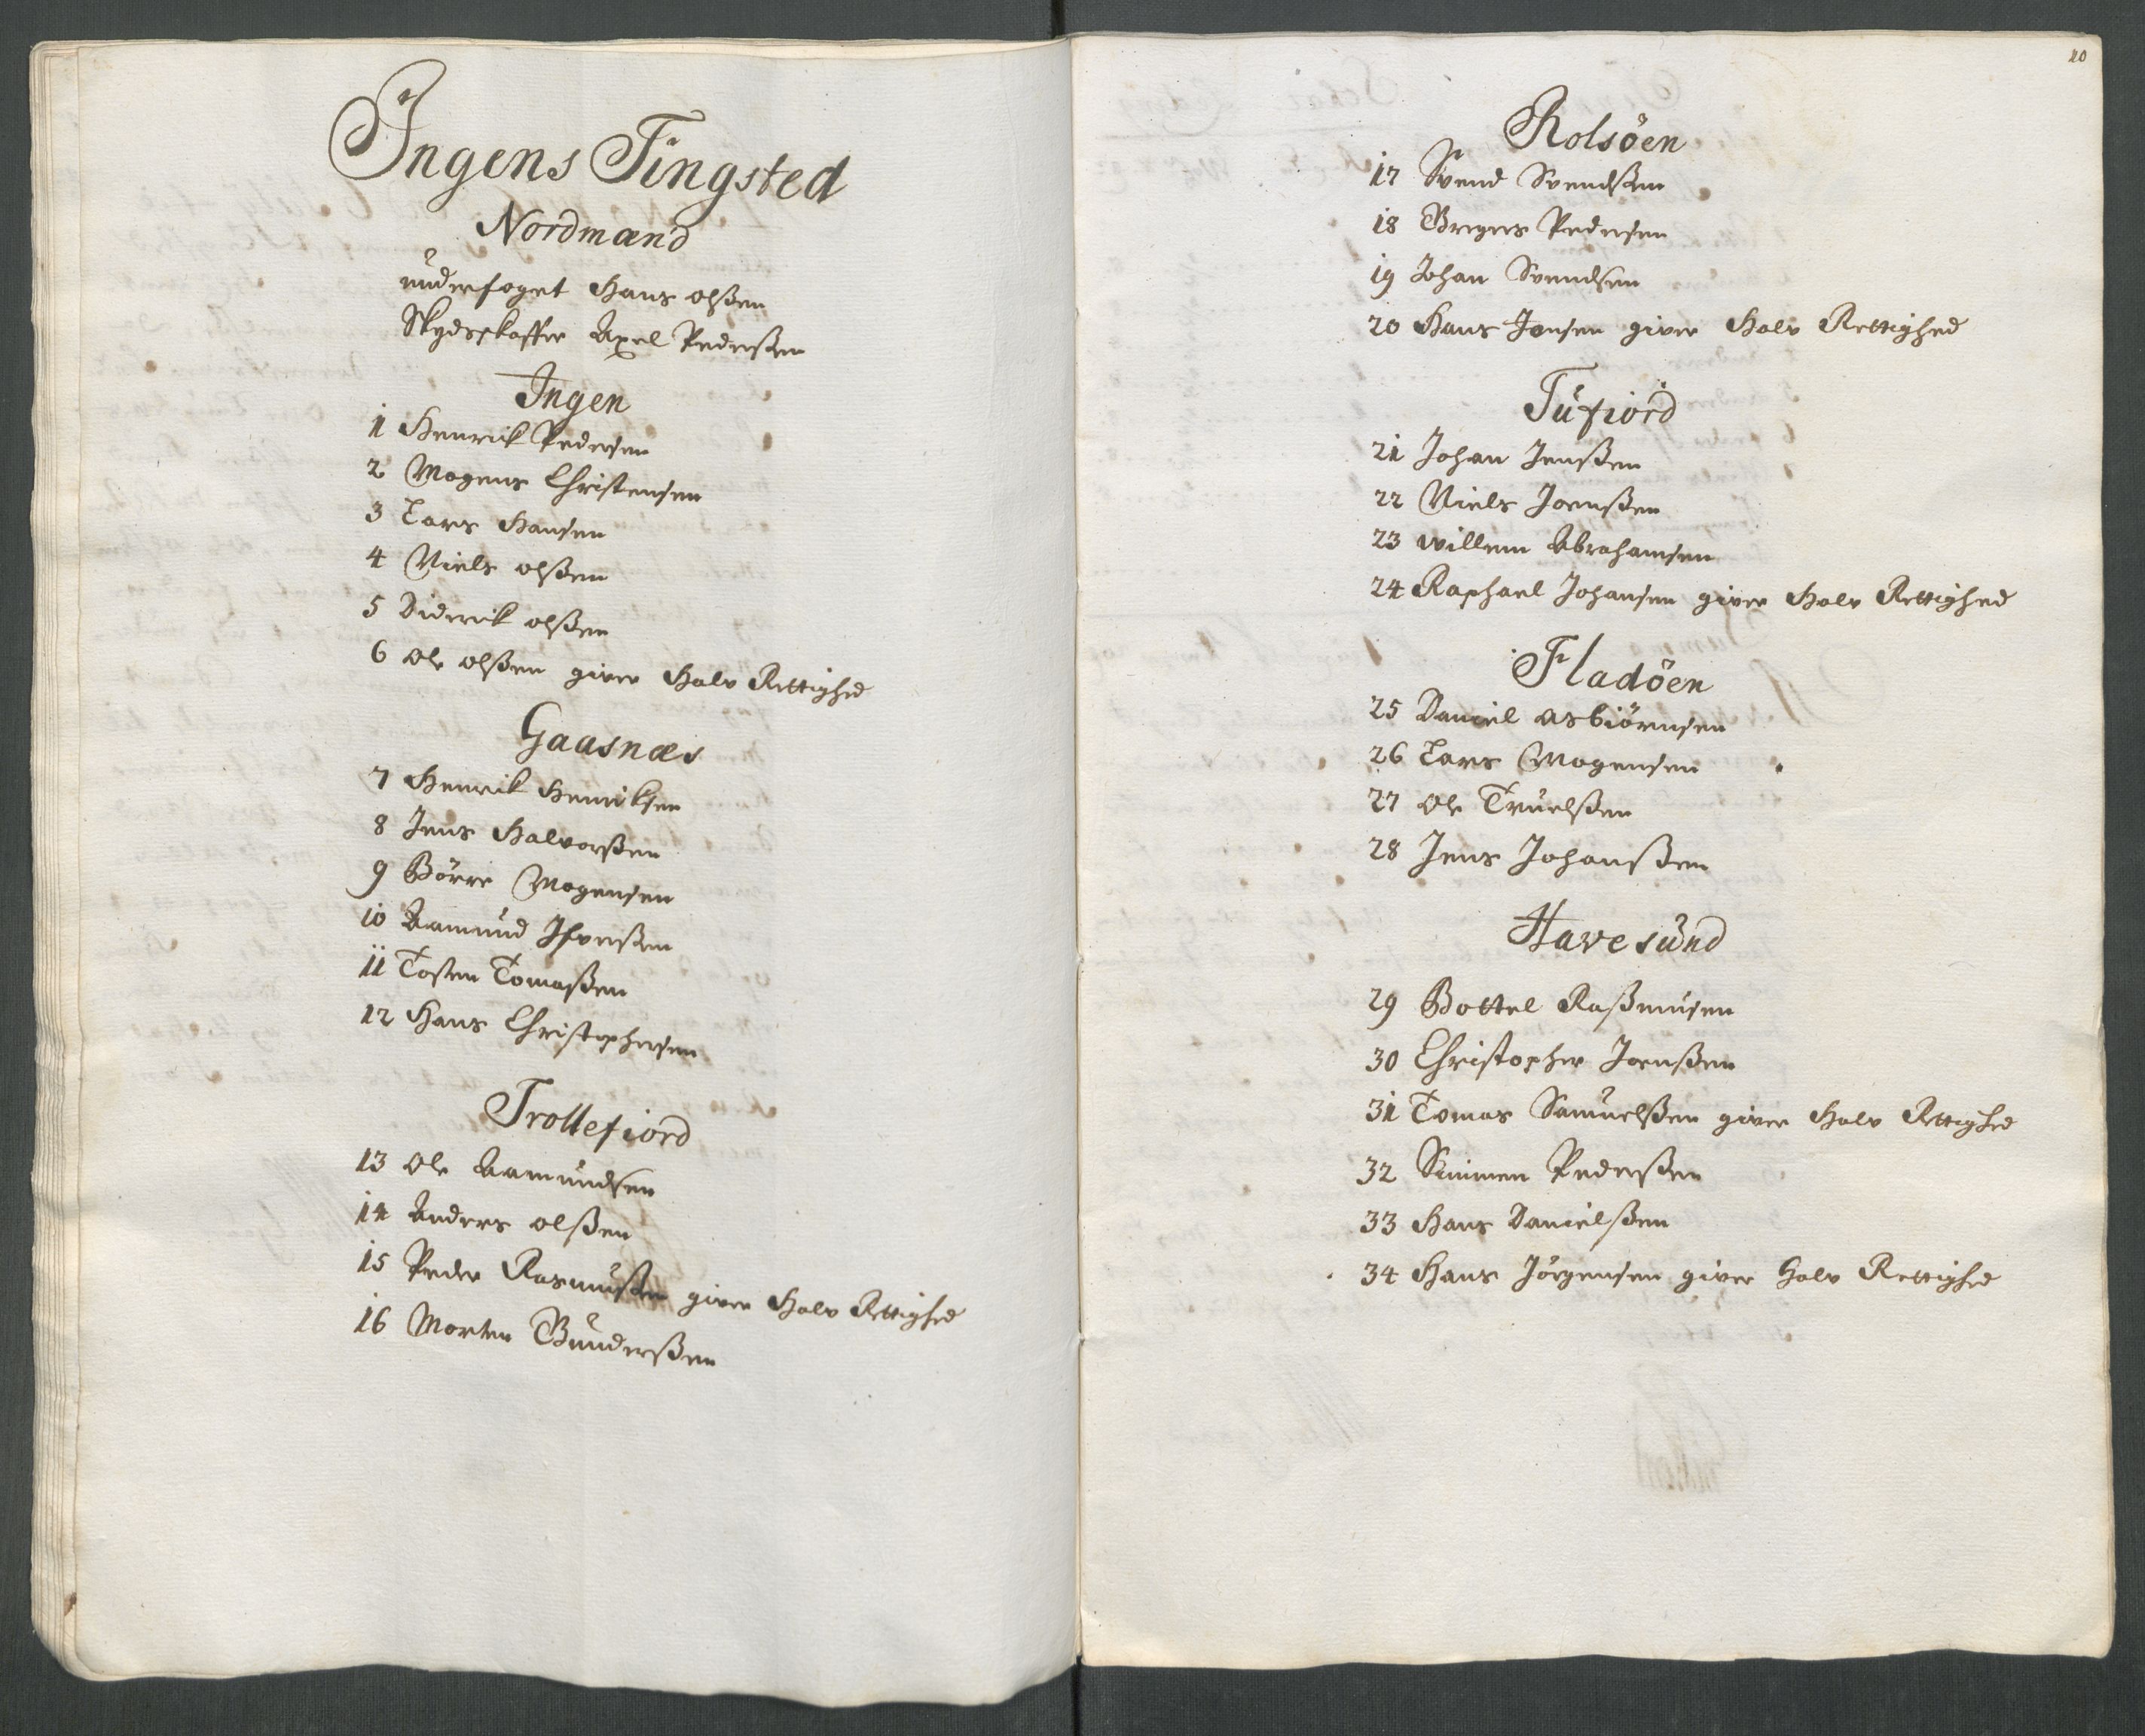 Ingens Tingsted
Nordmænd
underfoget Hans olßen
Skydsskaffer Axel Pederßen
Ingen
1 Henrich Pedersen
2 Mogens Christensen
3 Lars Hansen
4 Niels olßen
5 Diderich olßen
6 Ole olßen giver Halv Rettighed
Gaasnæs
7 Henrik Henriksen
8 Jens Halvorßen
9 Börre Mogensen
10 Aamund Ifverßen
11 Tosten Tomaßen
12 Hans Christophersen
Trollefiord
13 Ole Aamundsen
14 Anders olßen
15 Peder Rasmußen giver Halv Rettighed
16 Morten Gunderßen
10
Rolsöen
17 Svend Svendßen
18 Breges Pedersen
19 Johan Svendsen
20 Hans Jensen giver Halv Rettighed
Tüfiord
21 Johan Jenßen
22 Niels Joenßen
23 willem Abrahamsen
24 Raphael Johansen giver Halv Rettighed
Fladöen
25 Daniel asbiörnsen
26 Lars Mogensen
27 Ole Truelßen
28 Jens Johanßen
Havesund
29 Bottel Raßmusen
30 Christopher Joenßen
31 Tomas Samuelßen giver Halv Rettighed
32 Simmen Pederßen
33 Hans Danielßen
34 Hans Jörgensen giver Halv Rettighed